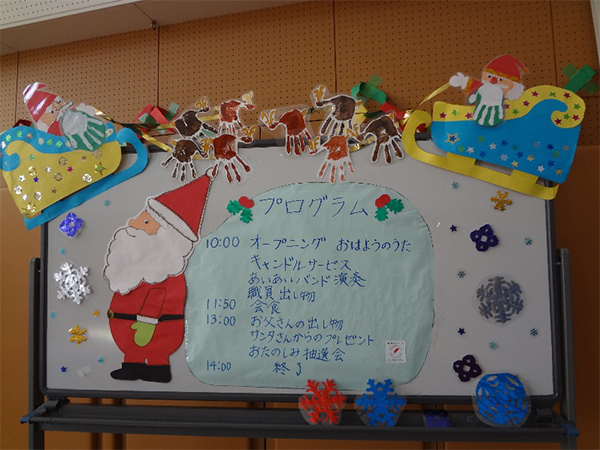 プログラム
10:00 オープニング おはようのうた
キャンドルサービス
あいあいバンド演奏
職員出し物
11:50 会食
13:00 お父さんの出し物
サンタさんからのプレゼント
おたのしみ抽選会
14:00 終了